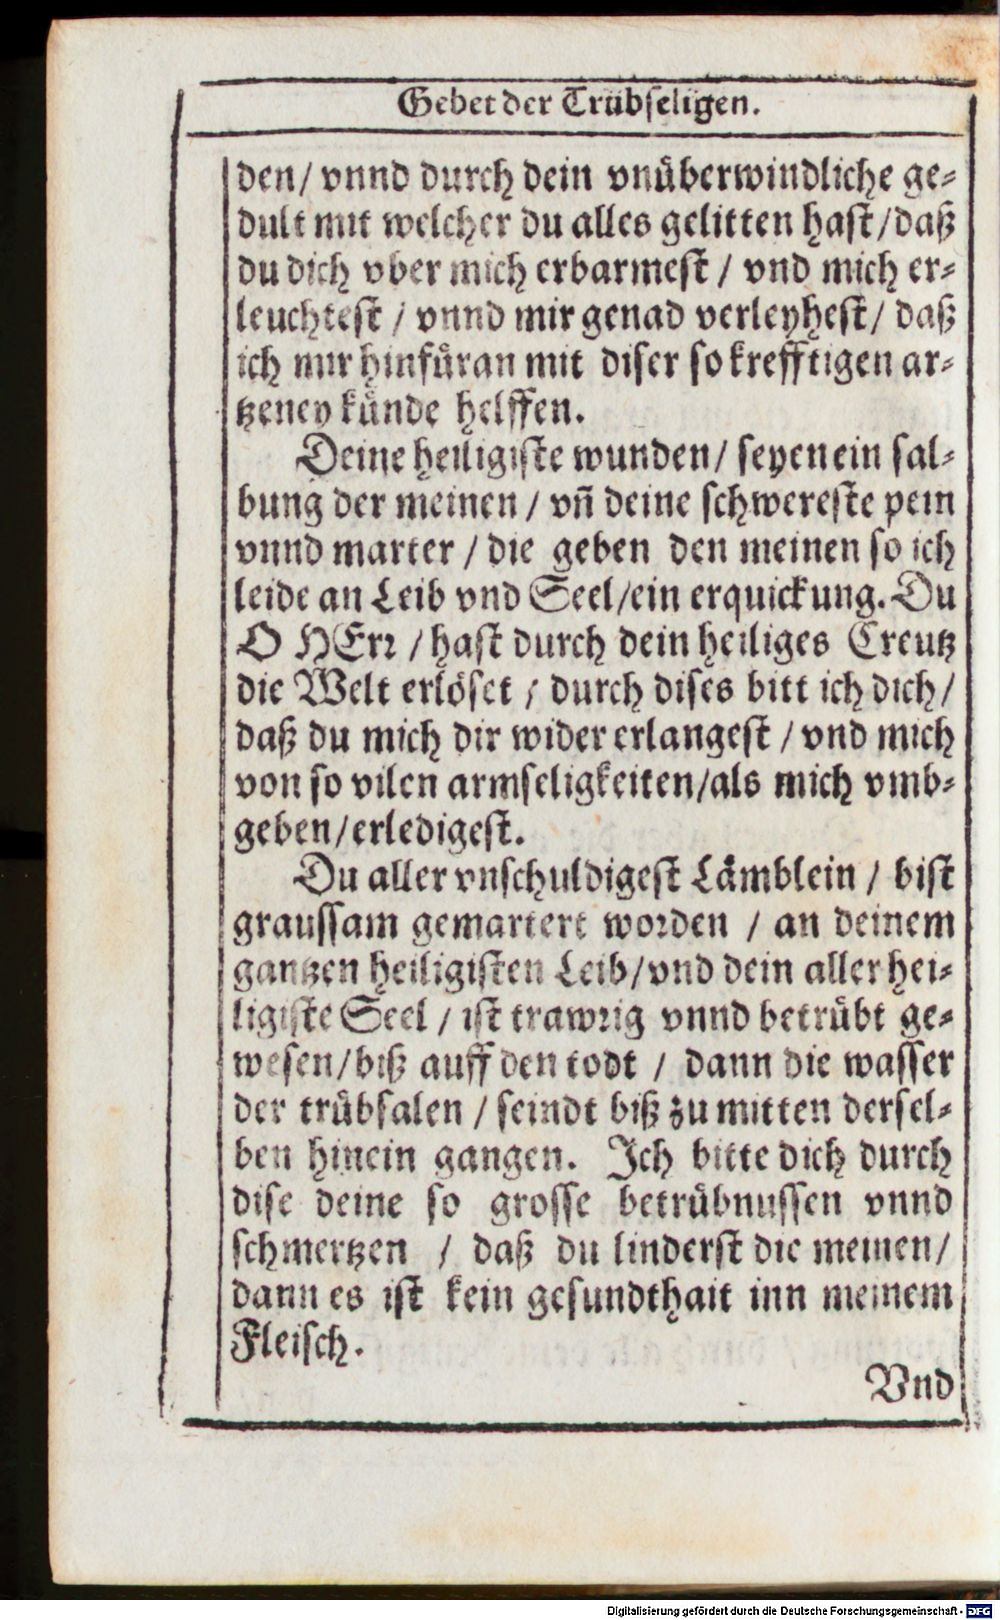 Gebet der Trübseligen.
den/ vnnd durch dein vnüberwindliche ge-
dult mit welcher du alles gelitten hast/daß
du dich vber mich erbarmest / vnd mich er-
leuchtest / vnnd mir genad verleyhest/ daß
ich mir hinfüran mit diser so krefftigen ar-
tzeney künde helffen.
Deine heiligiste wunden/ seyen ein sal-
bung der meinen / vñ deine schwereste pein
vnnd marter / die geben den meinen so ich
leide an Leib vnd Seel/ein erquickung. Du
O HErr /hast durch dein heiliges Creutz
die Welt erlöset / durch dises bitt ich dich/
daß du mich dir wider erlangest / vnd mich
von so vilen armseligkeiten/als mich vmb-
geben/erledigest.
Du aller vnschuldigest Lämblein / bist
graussam gemartert worden / an deinem
gantzen heiligisten Leib/vnd dein aller hei-
ligiste Seel / ist trawrig vnnd betrübt ge-
wesen/biß auff den todt / dann die wasser
der trübsalen / seindt biß zu mitten dersel-
ben hinein gangen. Ich bitte dich durch
dise deine so grosse betrübnussen vnnd
schmertzen / daß du linderst die meinen/
dann es ist kein gesundthait inn meinem
Fleisch.
Vnd
Digitalisierung gefördert durch die Deutsche Forschungsgemeinschaft - DFG